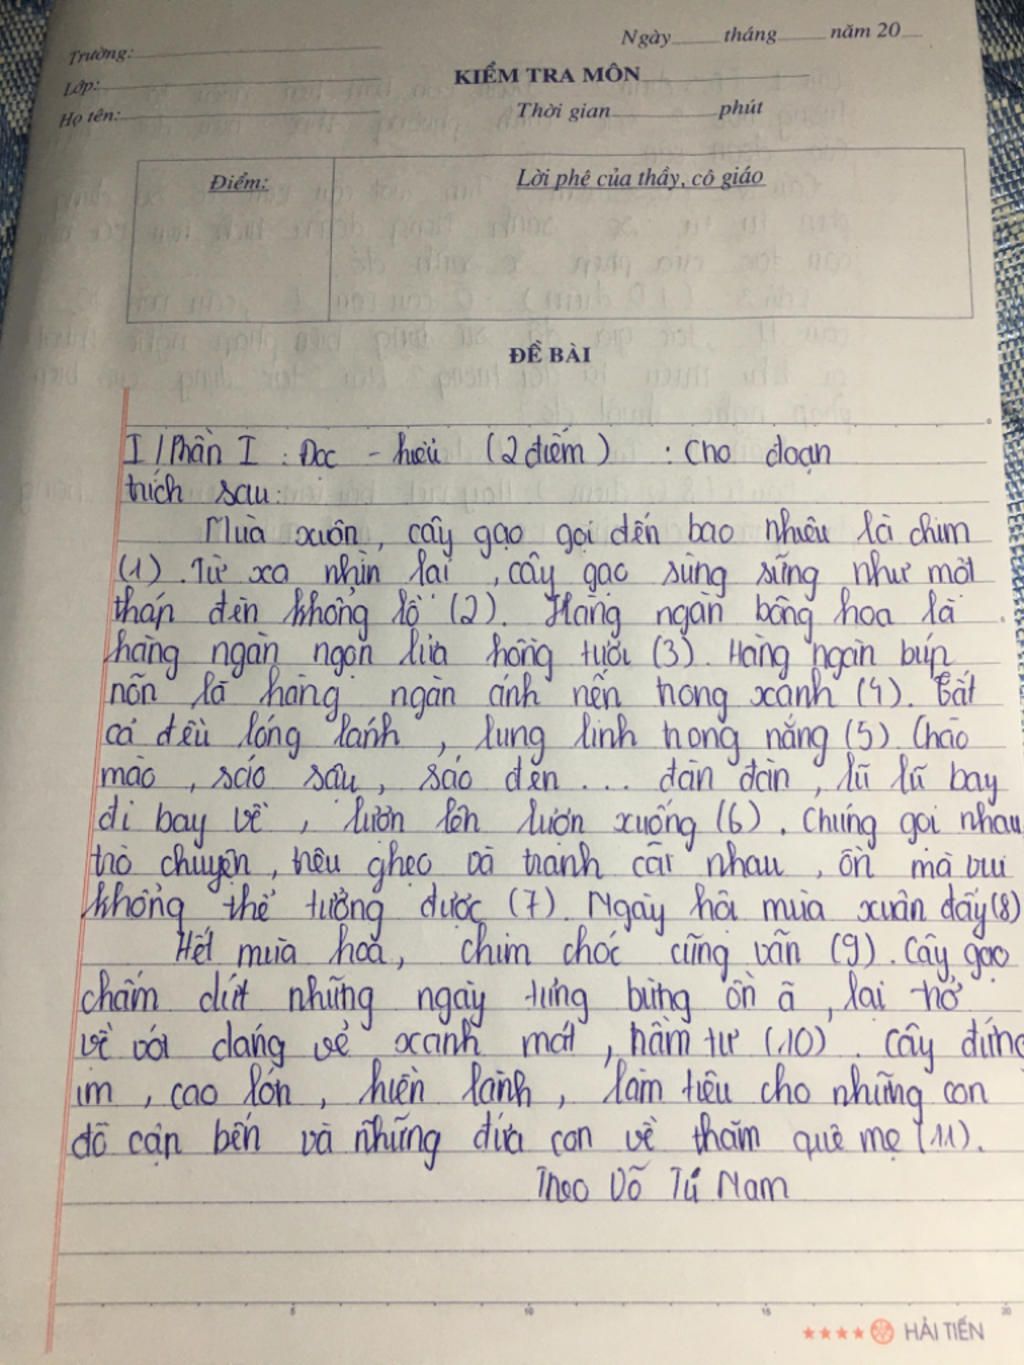 Ngày____ tháng____ năm 20__
Trường:
Lớp:
KIỂM TRA MÔN
Họ tên:
Thời gian phút
Điểm:
Lời phê của thầy, cô giáo
ĐỀ BÀI
I / Phần I : Đọc - hiểu (2 điểm) : Cho đoạn
trích sau:
Mùa xuân, cây gạo gọi đến bao nhiêu là chim
(1). Từ xa nhìn lại, cây gạo sừng sững như một
tháp đèn khổng lồ (2). Hàng ngàn bông hoa là
hàng ngàn ngọn lửa hồng tươi (3). Hàng ngàn búp
nõn là hàng ngàn ánh nến trong xanh (4). Tất
cả đều lóng lánh, lung linh trong nắng (5) Chào
mào, sáo sậu, sáo đen... đàn đàn, lũ lũ bay
đi bay về, lượn lên lượn xuống (6). Chúng gọi nhau
trò chuyện, trêu ghẹo và tranh cãi nhau, ồn mà vui
không thể tưởng được (7). Ngày hội mùa xuân đấy (8)
Hết mùa hoa, chim chóc cũng vãn (9). Cây gạo
chấm dứt những ngày tưng bừng ồn ã, lại trở
về với dáng vẻ xanh mát, trầm tư (10). Cây đứng
im, cao lớn, hiền lành, làm tiêu cho những con
đò cập bến và những đứa con về thăm quê mẹ (11).
Theo Vũ Tú Nam
5 10 15 20
HẢI TIẾN